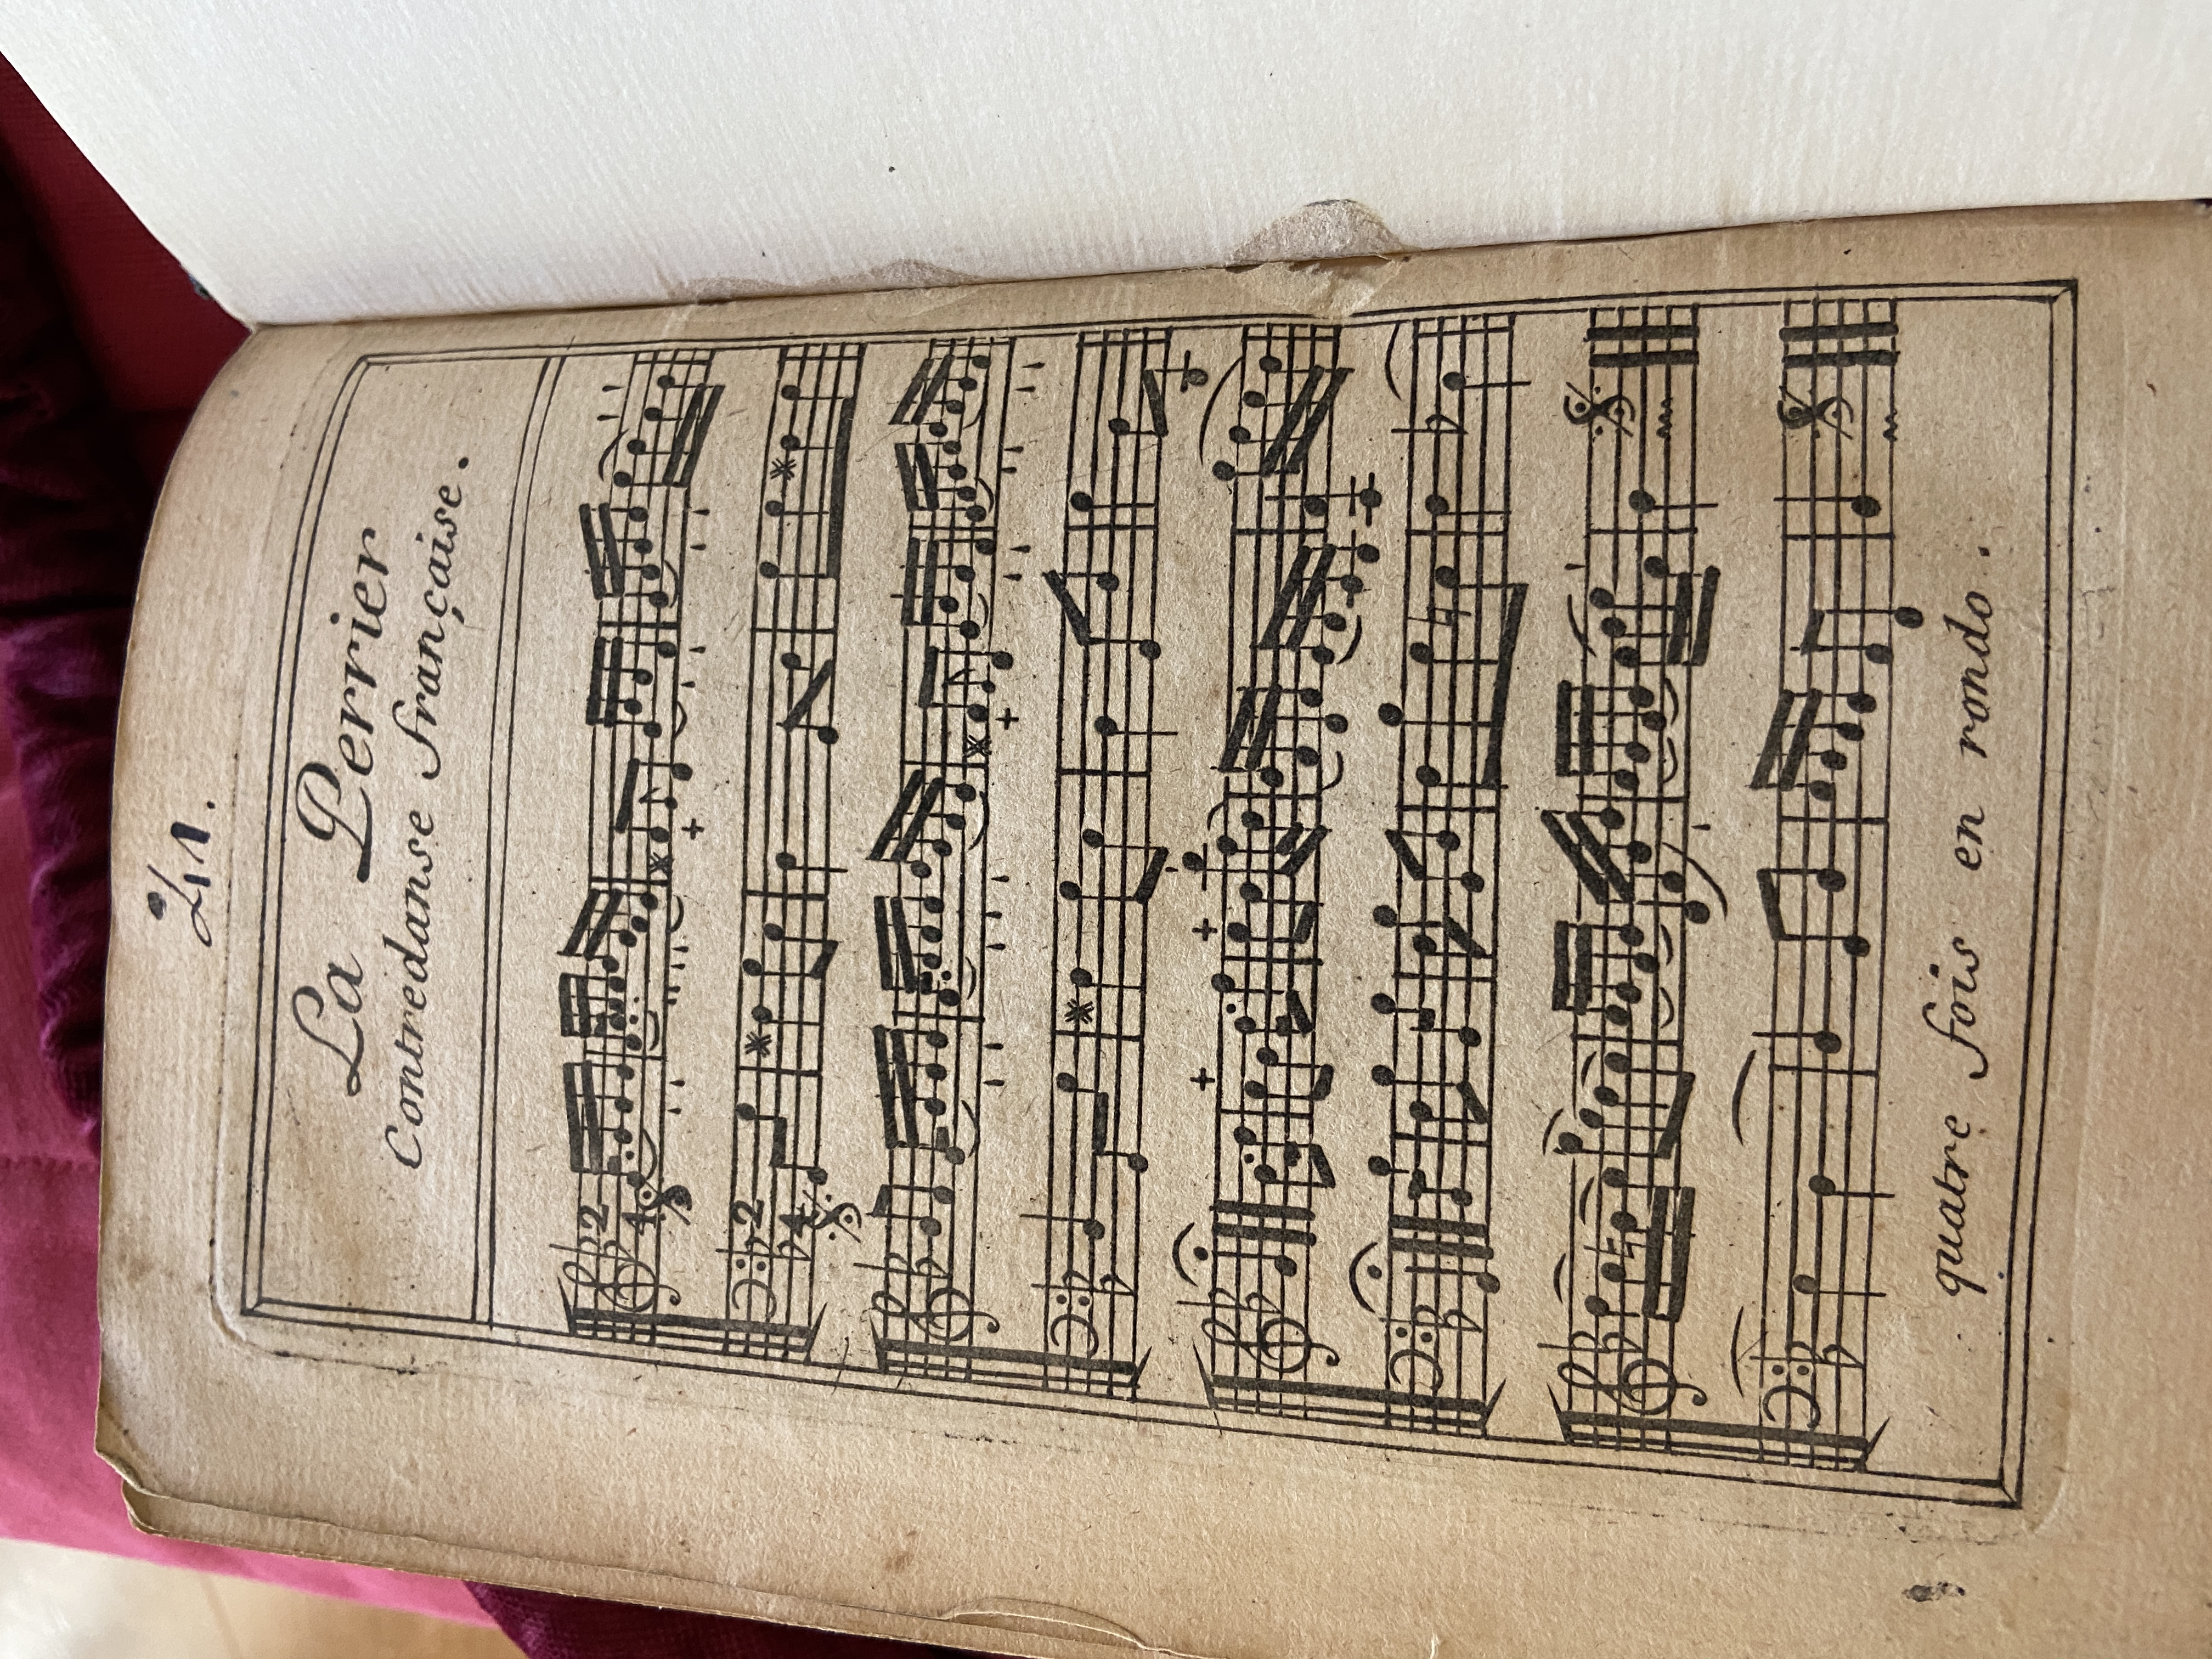 21.
La Perrier
Contredanse française.
2
4
2
4
quatre fois en rondo.